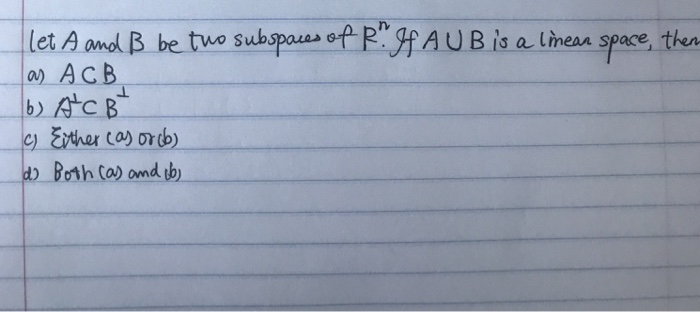 let A and B be two subspaces of Rⁿ. If A ∪ B is a linear space, then
a) A ⊂ B
b) A^⊥ ⊂ B^⊥
c) Either (a) or (b)
d) Both (a) and (b)